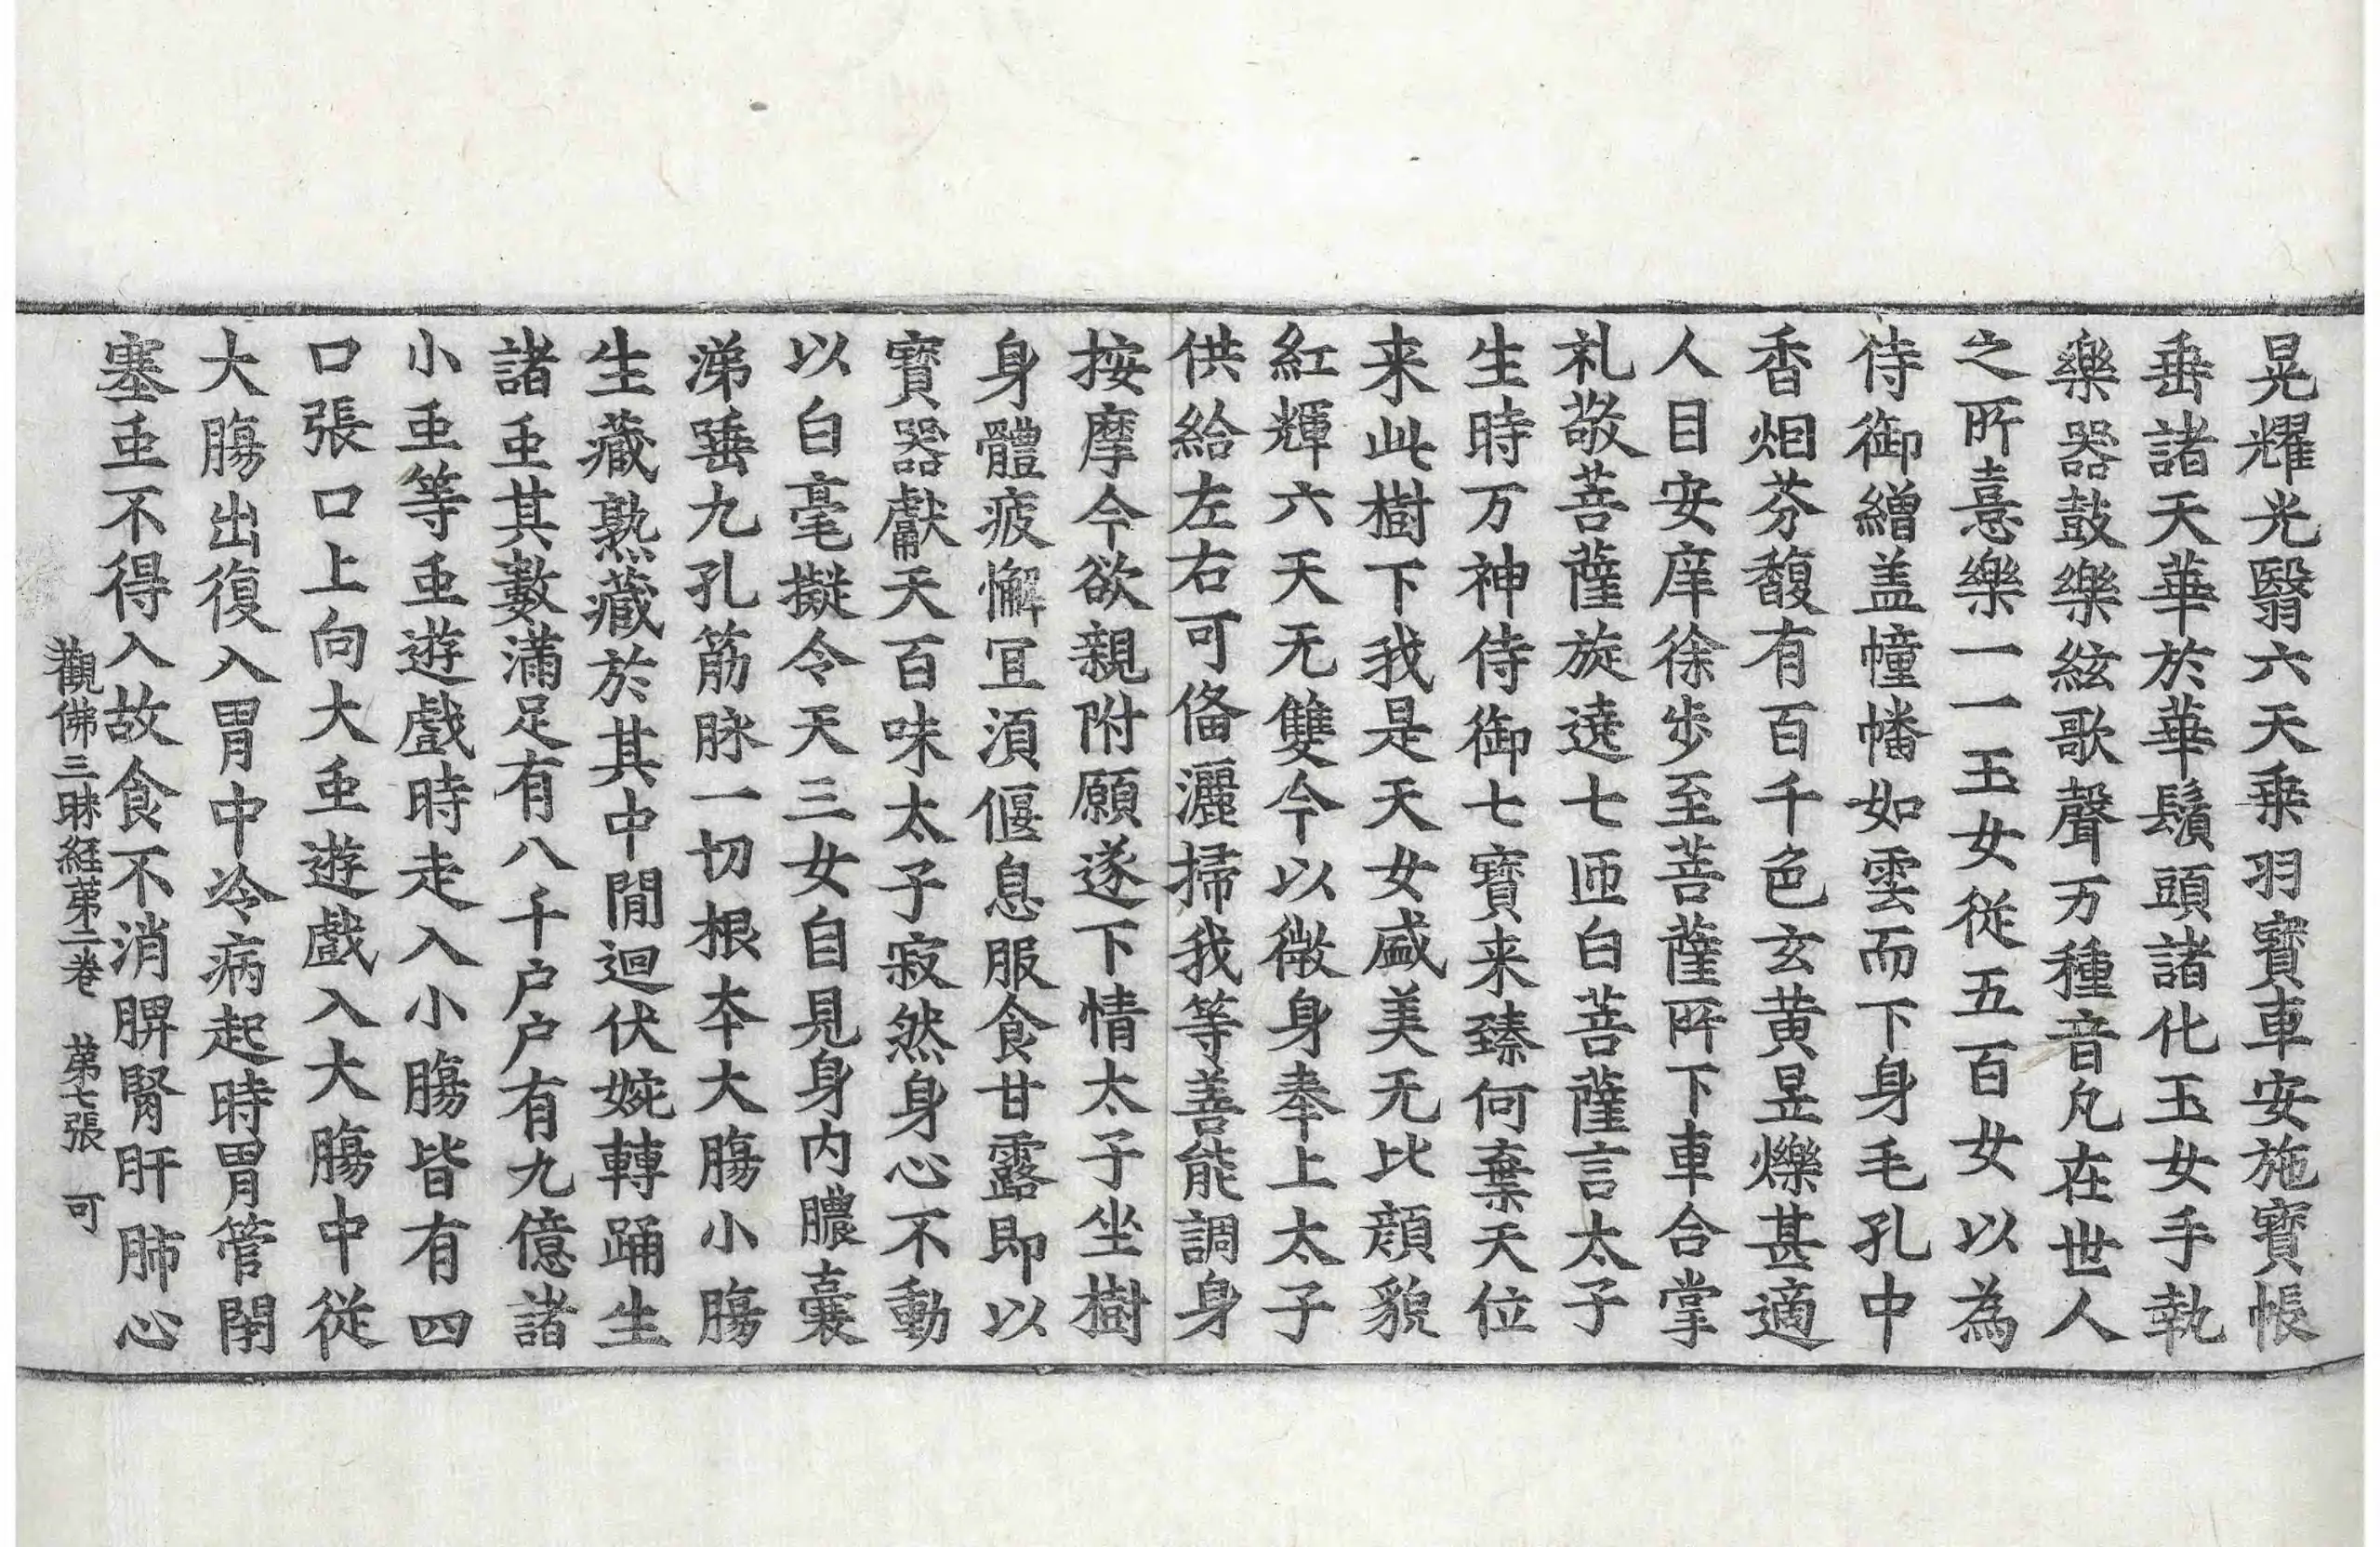 晃耀光翳六天乗羽寶車安施寶帳
垂諸天華於華鬚頭諸化玉女手執
樂器鼓樂絃歌聲万種音凡在世人
之所憙樂一一玉女従五百女以為
侍御繒盖幢幡如雲而下身毛孔中
香烟芬馥有百千色玄黄昱爍甚適
人目安庠徐步至菩薩所下車合掌
礼敬菩薩旋遶七匝白菩薩言太子
生時万神侍御七寶来臻何棄天位
来此樹下我是天女盛美无比顔貌
紅輝六天无雙今以微身奉上太子
供給左右可俻灑掃我等善能調身
按摩今欲親附願遂下情太子坐樹
身體疲懈冝湏偃息服食甘露即以
寶器獻天百味太子寂然身心不動
以白毫擬令天三女自見身内膿囊
涕唾九孔筋脉一切根本大膓小膓
生藏熟藏於其中間迴伏婉轉踊生
諸䖝其數滿足有八千户户有九億諸
小䖝等䖝遊戲時走入小膓皆有四
口張口上向大䖝遊戲入大膓中従
大膓出復入胃中冷病起時胃管閇
塞䖝不得入故食不消脾腎肝肺心
觀佛三昧経第二卷 第七張 可